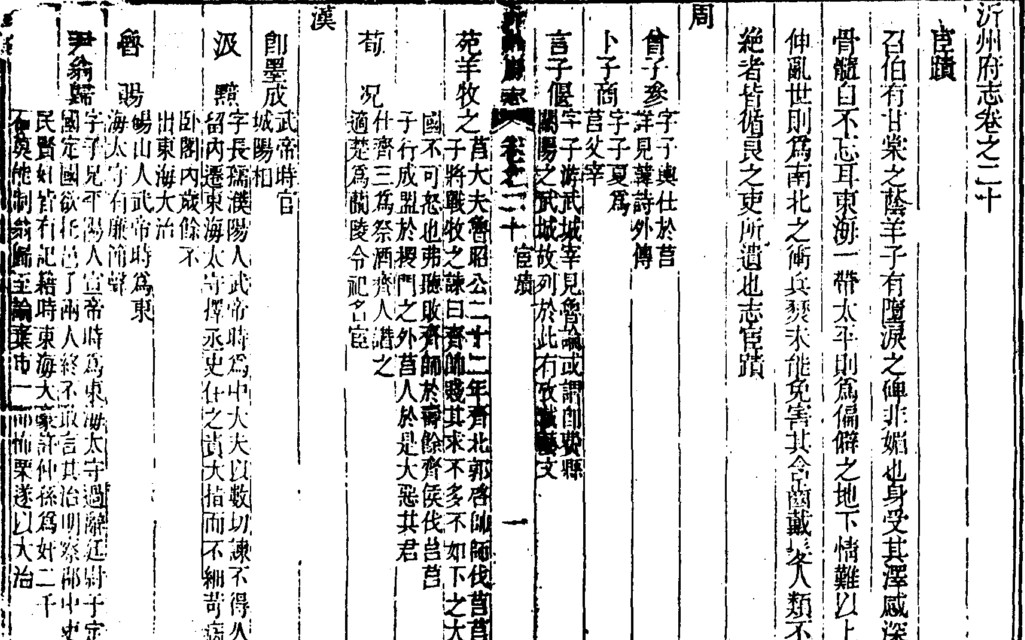 沂州府志卷之二十
宦蹟
召伯有甘棠之蔭羊子有墮淚之碑非媚也身受其澤感深
骨髓自不忘耳東海一帶太平則為偏僻之地下情難以上
伸亂世則為南北之衝兵燹未能免害其含齒戴髮人類不
絕者皆循良之吏所遺也志宦蹟
周
曾子參
字子輿仕於莒
詳見韓詩外傳
卜子商
字子夏為
莒父宰
言子偃
字子游武城宰見魯論或謂即費縣
關陽之武城故列於此有攷載藝文
沂州府志 卷之二十 宦蹟 一
苑羊牧之
莒大夫魯昭公二十二年齊北郭啓帥師伐莒莒
子將戰牧之諫曰齊帥賤其求不多不如下之大
國不可怒也弗聽敗齊師於壽餘齊侯伐莒莒
子行成盟於稷門之外莒人於是大惡其君
荀況
仕齊三為祭酒齊人譖之
適楚為蘭陵令祀名宦
漢
即墨成
武帝時官
城陽相
汲黯
字長孺濮陽人武帝時為中大夫以數切諫不得久
留內遷東海太守擇丞史任之責大指而不細苛病
臥閣內歲餘不
出東海大治
魯賜
碭山人武帝時為東
海太守有廉簡聲
尹翁歸
字子兄平陽人宣帝時為東海太守過辭廷尉于定
國定國欲托邑子兩人終不敢言其治明察郡中吏
民賢奸皆有記籍時東海大豪許仲孫為奸二千
石莫能制翁歸至論棄市一郡怖栗遂以大治